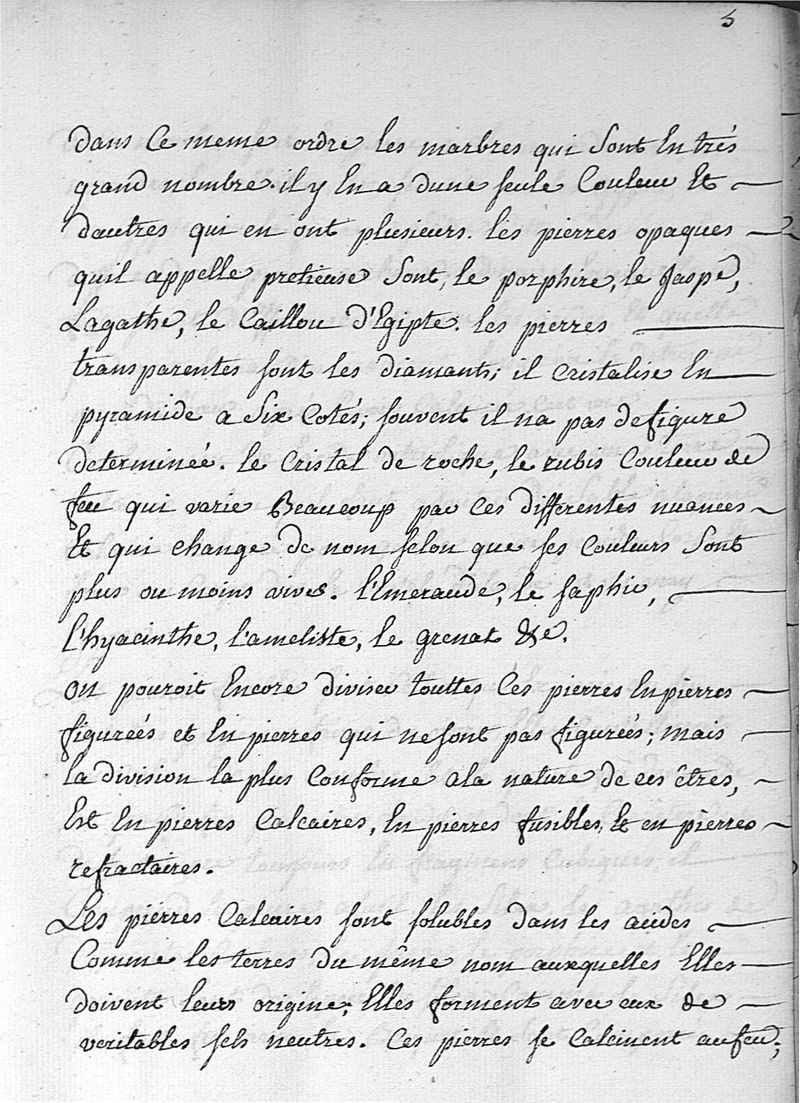 5
dans ce meme ordre les marbres qui sont en trés
grand nombre. il y en a dune seule couleur et
dautres qui en ont plusieurs. les pierres opaques
quil appelle pretieuse sont, le porphire, le jaspe,
Lagathe, le caillou d'Egipte. les pierres
transparentes sont les diamants; il cristalise en
pyramide a six cotés; souvent il na pas de figure
determinée. le cristal de roche, le rubis couleur de
feu qui varie Beaucoup par ces differentes nuances
et qui change de nom selon que ses couleurs sont
plus ou moins vives. l'Emeraude, le saphir,
l'hyacinthe, l'ametiste, le grenat &c.
on pouroit encore diviser touttes ces pierres en pierres
figureés et en pierres qui ne sont pas figureés; mais
la division la plus conforme a la nature de ces êtres,
est en pierres calcaires, en pierres fusibles, et en pierres
refractaires.
Les pierres calcaires sont solubles dans les acides
comme les terres du même nom auxquelles elles
doivent leurs origine; elles forment avec eux de
veritables sels neutres. Ces pierres se calcinent au feu;